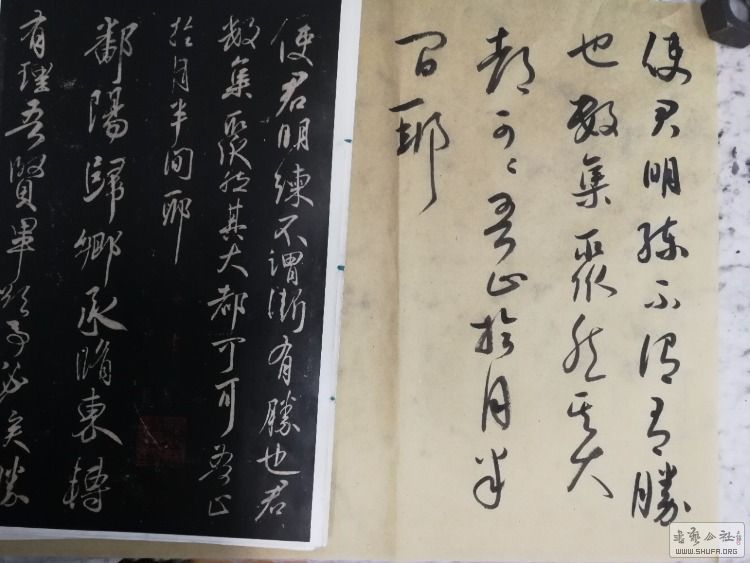 使君明練不謂有勝
也數集聚然其大
都可〻吾正於月半
間耶
使君明練不謂漸有勝也君
數集聚然其大都可可吾正
於月半間耶
鄱陽歸鄉承脩東轉
有理吾賢畢
書藝公社
WWW.SHUFA.ORG